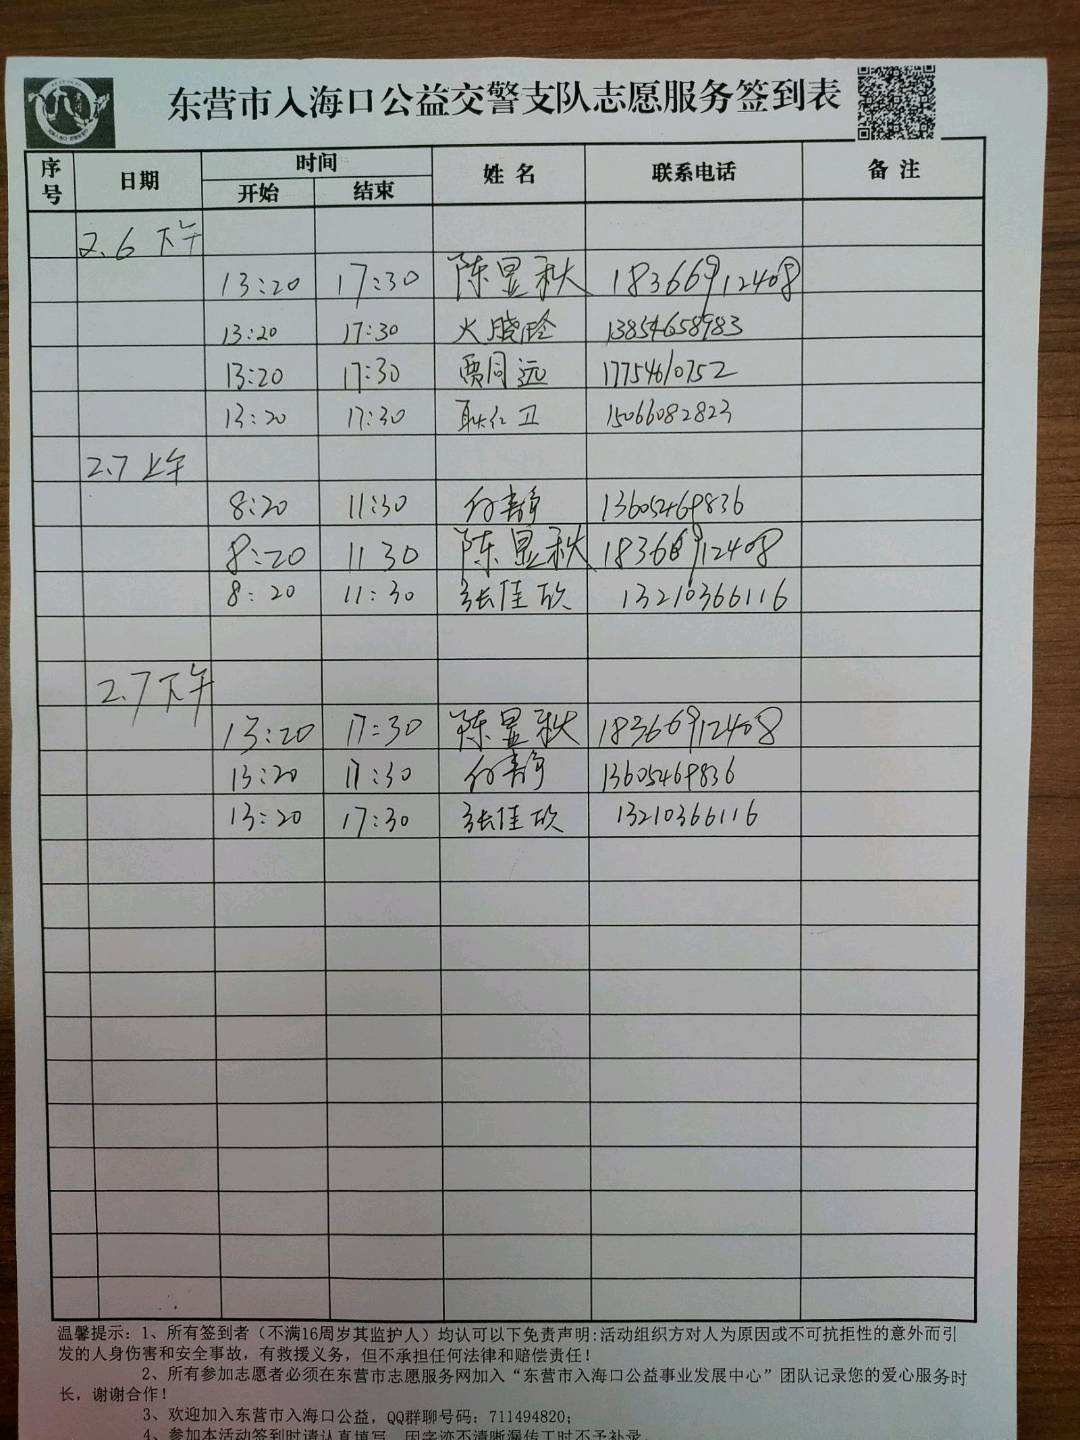 东营市入海口公益交警支队志愿服务签到表
序号 日期 时间 姓名 联系电话 备注
开始 结束
2.6 下午
13:20 17:30 陈显秋 18366912408
13:20 17:30 13854658983
13:20 17:30 贾同远 17754610752
13:20 17:30 耿红卫 15066082823
2.7 上午
8:20 11:30 付静 13605469836
8:20 11 30 陈显秋 18366912408
8:20 11:30 张佳欣 13210366116
2.7 下午
13:20 17:30 陈显秋 18366912408
13:20 17:30 付静 13605469836
13:20 17:30 张佳欣 13210366116
温馨提示：1、所有签到者（不满16周岁其监护人）均认可以下免责声明:活动组织方对人为原因或不可抗拒性的意外而引
发的人身伤害和安全事故，有救援义务，但不承担任何法律和赔偿责任！
2、所有参加志愿者必须在东营市志愿服务网加入“东营市入海口公益事业发展中心”团队记录您的爱心服务时
长，谢谢合作！
3、欢迎加入东营市入海口公益，QQ群聊号码：711494820；
4、参加本活动签到时请认真填写，因字迹不清晰漏传工时不予补录。